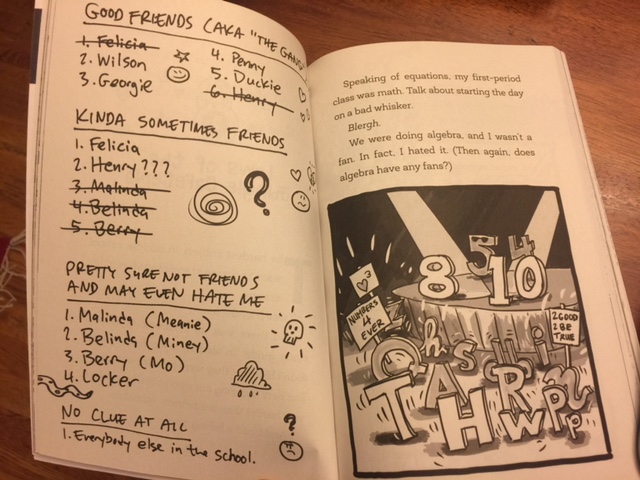 GOOD FRIENDS (AKA "THE GANG")
1. Felicia
2. Wilson
3. Georgie
4. Penny
5. Duckie
6. Henry
KINDA SOMETIMES FRIENDS
1. Felicia
2. Henry???
3. Malinda
4. Belinda
5. Berry
?
PRETTY SURE NOT FRIENDS
AND MAY EVEN HATE ME
1. Malinda (Meanie)
2. Belinda (Miney)
3. Berry (Mo)
4. Locker
NO CLUE AT ALL
1. Everybody else in the school.
?
Speaking of equations, my first-period
class was math. Talk about starting the day
on a bad whisker.
Blergh.
We were doing algebra, and I wasn't a
fan. In fact, I hated it. (Then again, does
algebra have any fans?)
5 4
8 10
3
NUMBERS
4
EVER
2 GOOD
2 BE
TRUE
T A H R W P P